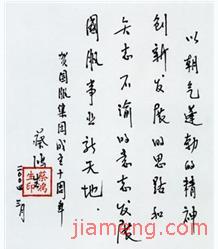 以朝气蓬勃的精神
创新发展的思路和
矢志不渝的意志发展
国服事业新天地
贺国服集团成立十周年
蔡鸿生
二〇〇四年三月
蔡鸿
生印
jb.mzoyi.com